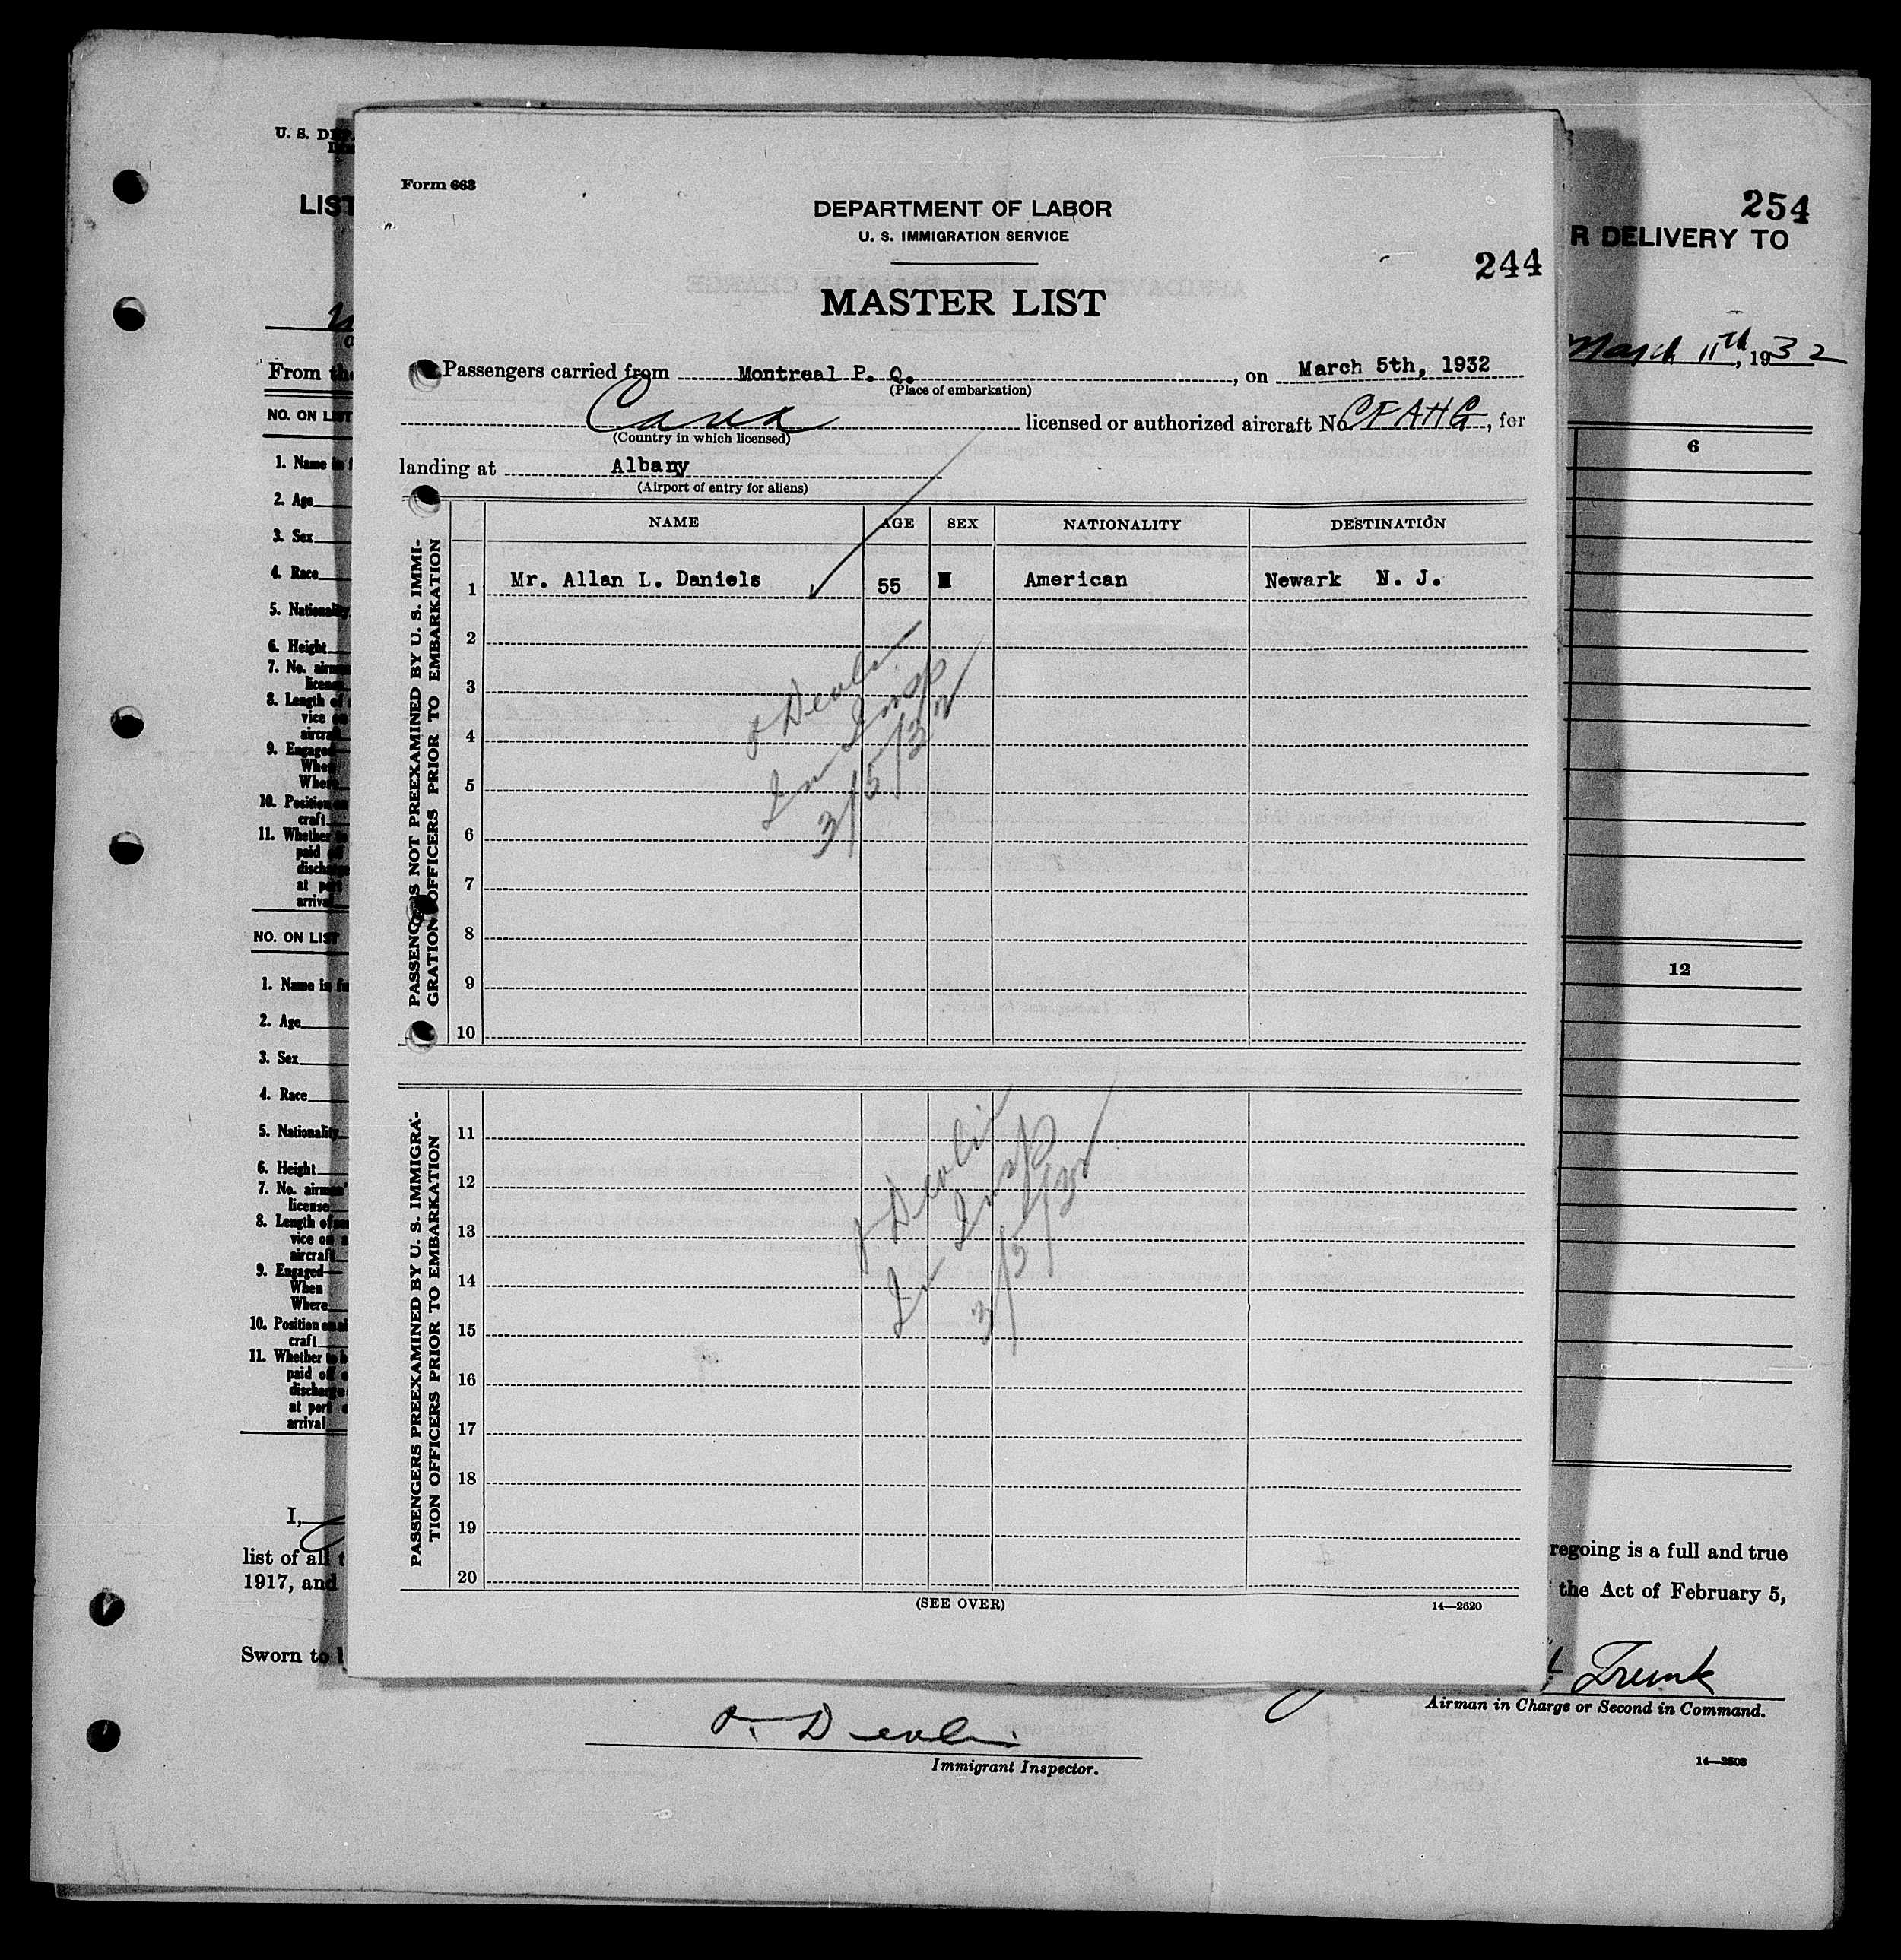 Form 663
DEPARTMENT OF LABOR
U. S. IMMIGRATION SERVICE
244
MASTER LIST
Passengers carried from Montreal P. Q., on March 5th, 1932
(Place of embarkation)
Cana licensed or authorized aircraft No. CFAHG, for
(Country in which licensed)
landing at Albany
(Airport of entry for aliens)
NAME AGE SEX NATIONALITY DESTINATION
PASSENGERS NOT PREEXAMINED BY U. S. IMMI-
GRATION OFFICERS PRIOR TO EMBARKATION
1 Mr. Allan L. Daniels 55 M American Newark N. J.
2
3
4
5
6
7
8
9
10
Devlin
Im Insp
3/5/32
PASSENGERS PREEXAMINED BY U. S. IMMIGRA-
TION OFFICERS PRIOR TO EMBARKATION
11
12
13
14
15
16
17
18
19
20
Devlin
Im Insp
3/5/32
(SEE OVER)
14—2620
U. S. DEP
LIST
From the
NO. ON LIST
1. Name in f
2. Age
3. Sex
4. Race
5. Nationality
6. Height
7. No. airman
license
8. Length of
vice on
aircraft
9. Engaged—
When
Where
10. Position on
craft
11. Whether to
paid off
discharge
at port
arrival
NO. ON LIST
1. Name in fu
2. Age
3. Sex
4. Race
5. Nationality
6. Height
7. No. airman's
license
8. Length of ser
vice on a
aircraft
9. Engaged—
When
Where
10. Position on ai
craft
11. Whether to b
paid off o
discharge
at port o
arrival
I,
list of all t
1917, and
Sworn to
254
R DELIVERY TO
March 11th, 1932
6
12
regoing is a full and true
the Act of February 5,
Trunk
Airman in Charge or Second in Command.
Devlin
Immigrant Inspector.
14—2503